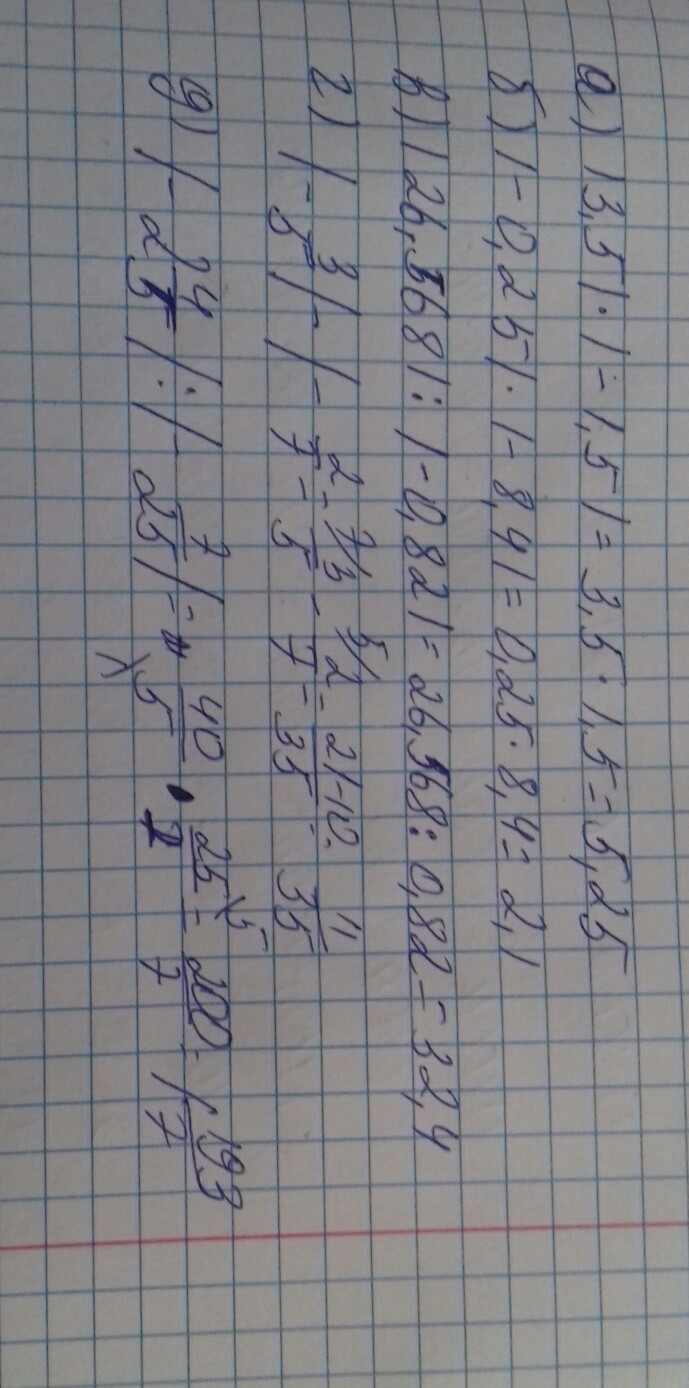 а) |3,5|·|-1,5|=3,5·1,5=5,25
б) |-0,25|·|-8,4|=0,25·8,4=2,1
в) |26,568|:|-0,82|=26,568:0,82=32,4
г) |-3/5|-|-2/7|=3/5-2/7=21-10/35=11/35
д) |-2 4/5|:|-7/25|=40/5·25/7=200/7=1 193/7